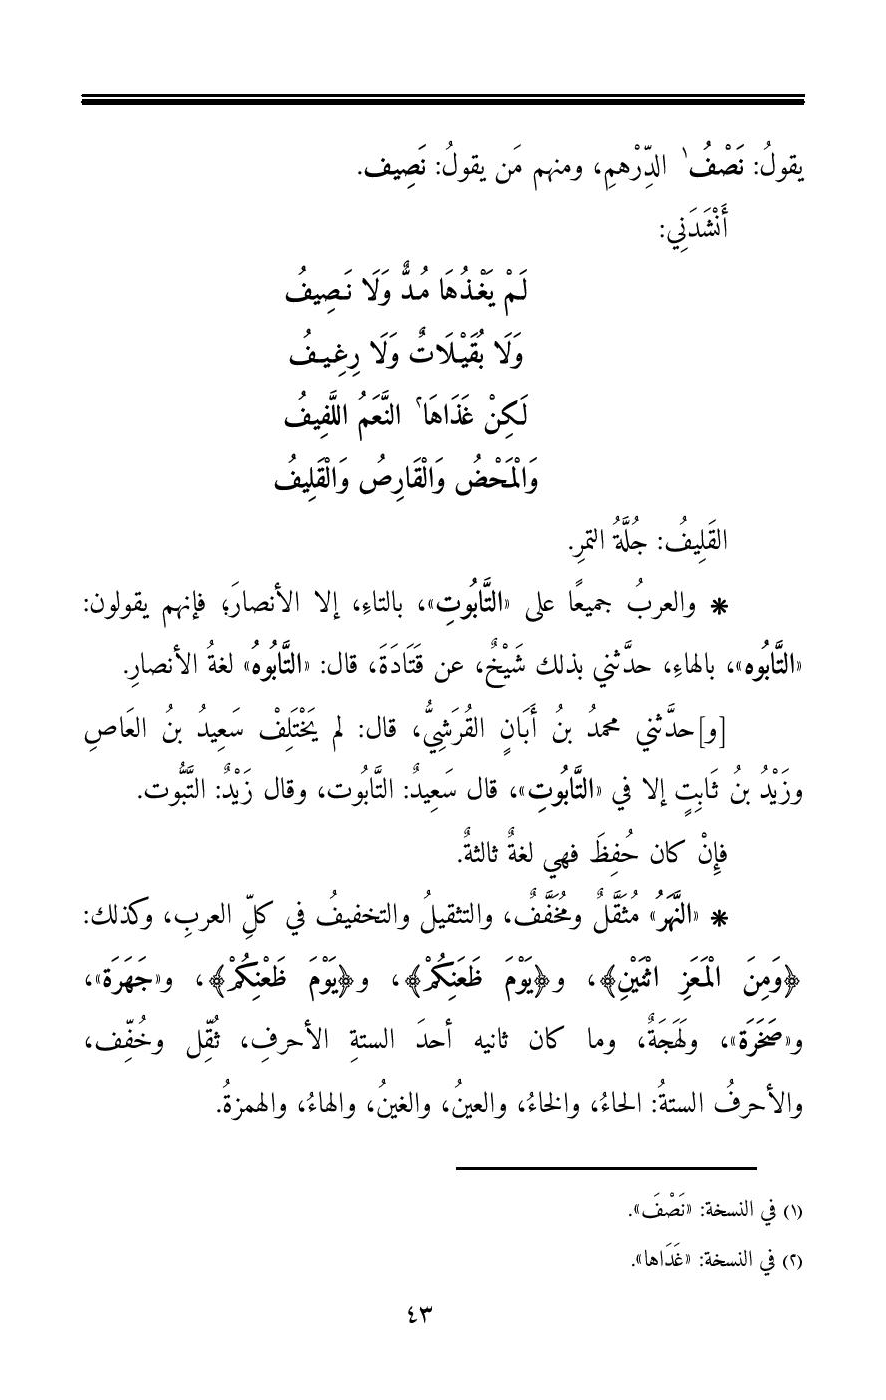 يقولُ: نَصْفُ ١ الدِّرْهمِ، ومنهم مَن يقولُ: نَصِيف.
أَنْشَدَنِي:
لَمْ يَغْذُهَا مُدٌّ وَلَا نَصِيفُ
وَلَا بُقَيْلَاتٌ وَلَا رِغِيفُ
لَكِنْ غَذَاهَا ٢ النَّعَمُ اللَّفِيفُ
وَالْمَحْضُ وَالْقَارِصُ وَالْقَلِيفُ
القَلِيفُ: جُلَّةُ التمرِ.
* والعربُ جميعًا على «التَّابُوتِ»، بالتاءِ، إلا الأنصارَ؛ فإنهم يقولون:
«التَّابُوه»، بالهاءِ، حدَّثني بذلك شَيْخٌ، عن قَتَادَةَ، قال: «التَّابُوهُ» لغةُ الأنصارِ.
[و]حدَّثني محمدُ بنُ أَبَانٍ القُرَشِيُّ، قال: لم يَخْتَلِفْ سَعِيدُ بنُ العَاصِ
وزَيْدُ بنُ ثَابِتٍ إلا في «التَّابُوتِ»، قال سَعِيدٌ: التَّابُوت، وقال زَيْدٌ: التَّبُّوت.
فإِنْ كان حُفِظَ فهي لغةٌ ثالثةٌ.
* «النَّهَرُ» مُثَقَّلٌ ومُخَفَّفٌ، والتثقيلُ والتخفيفُ في كلِّ العربِ، وكذلك:
﴿وَمِنَ الْمَعَزِ اثْنَيْنِ﴾، و﴿يَوْمَ ظَعَنِكُمْ﴾، و﴿يَوْمَ ظَعْنِكُمْ﴾، و«جَهَرَة»،
و«صَخَرَة»، ولَهَجَةٌ، وما كان ثانيه أحدَ الستةِ الأحرفِ، ثُقِّل وخُفِّف،
والأحرفُ الستةُ: الحاءُ، والخاءُ، والعينُ، والغينُ، والهاءُ، والهمزةُ.
(١) في النسخة: «نَصْفَ».
(٢) في النسخة: «غَدَاها».
٤٣